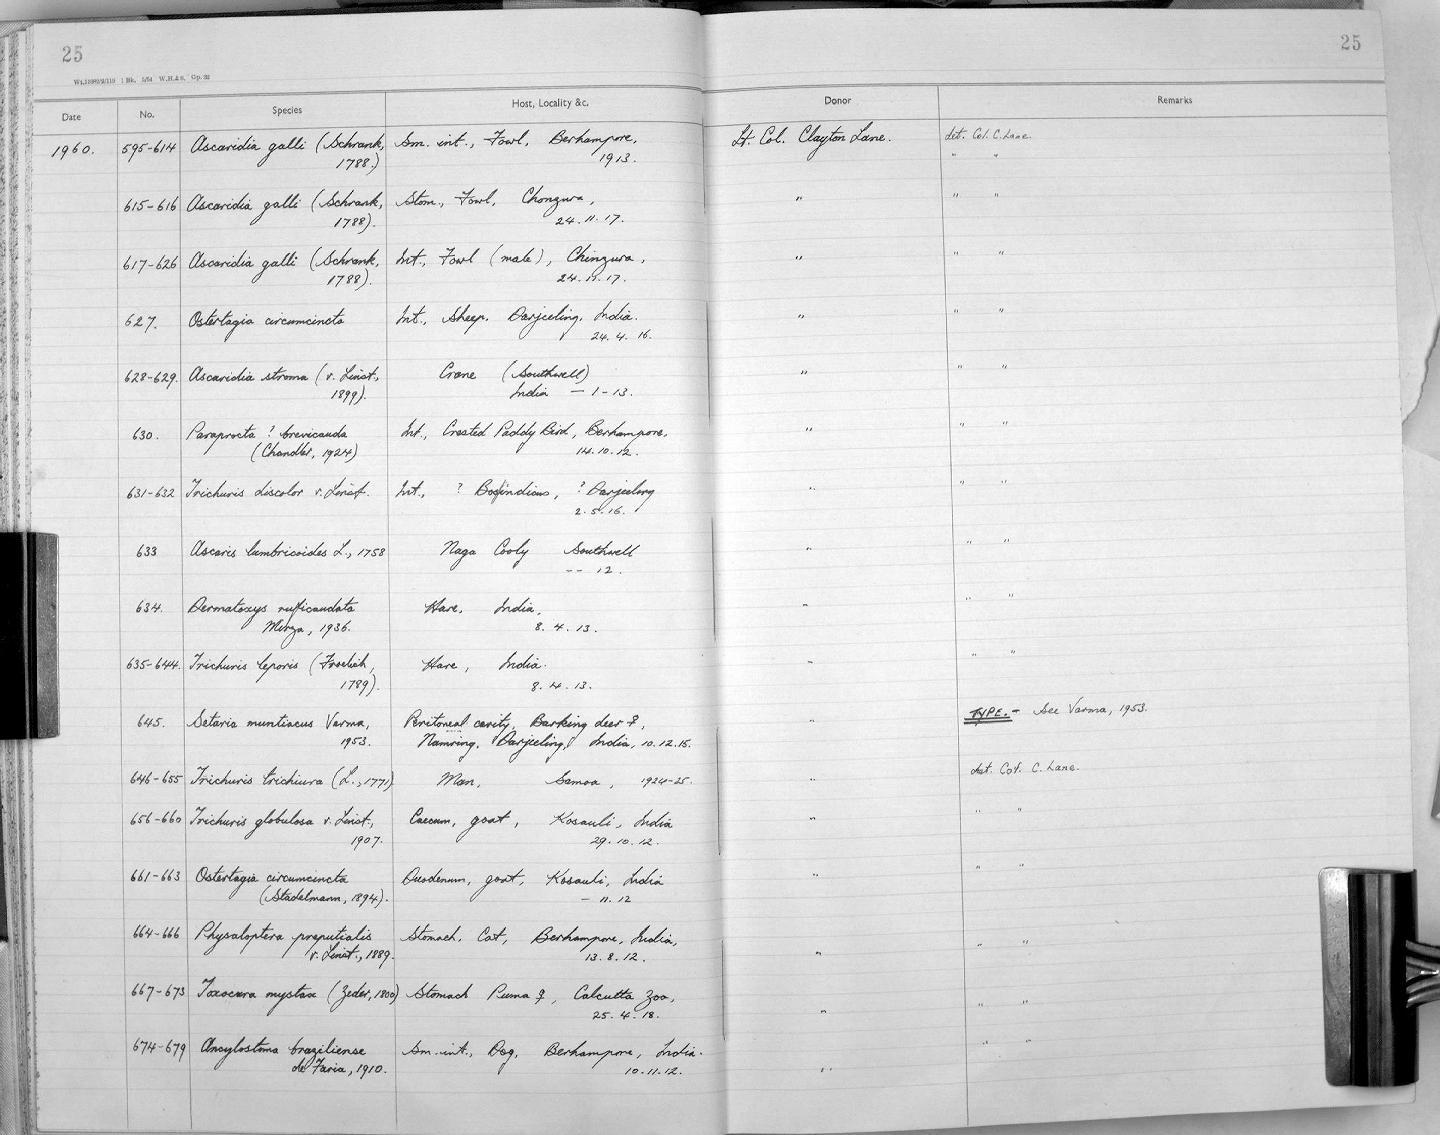 25
25
Wt.13982/9/119 1 Bk. 5/54 W.H.&S. Gp.32
Date No. Species Host, Locality &c. Donor Remarks
1960. 595-614 Ascaridia galli (Schrank, Sm. int., Fowl, Berhampore, Lt. Col. Clayton Lane. det. Col. C. Lane.
1788.) 1913. " "
615-616 Ascaridia galli (Schrank, Stom., Fowl, " " "
1788). 24.11.17.
617-626 Ascaridia galli (Schrank, Int., Fowl (male), Chinzura, " " "
1788). 24.11.17.
627. Ostertagia circumcincta Int., Sheep. Darjeeling, India. " " "
24.4.16.
628-629. Ascaridia stroma (v. Linst., Crane (Southwell) " " "
1899). India - 1-13.
630. Paraprocta ? brevicauda Int., Crested Paddy Bird, Berhampore, " " "
(Chandler, 1924) 14.10.12.
631-632 Trichuris discolor v. Linst. Int., ? Bos indicus, ? Darjeeling " " "
2.5.16.
633 Ascaris lumbricoides L., 1758 Naga Cooly Southwell " " "
-- 12.
634. Dermatoxys ruficaudata Hare, India, " " "
Mirza, 1936. 8.4.13.
635-644. Trichuris leporis (Froelich, Hare, India. " " "
1789). 8.4.13.
645. Setaria muntiacus Varma, Peritoneal cavity, Barking deer ♀, " TYPE. - See Varma, 1953.
1953. Namring, Darjeeling, India, 10.12.15.
646-655 Trichuris trichiura (L., 1771) Man, Samoa, 1924-25. " det. Col. C. Lane.
656-660 Trichuris globulosa v. Linst., Caecum, goat, Kosauli, India " " "
1907. 29.10.12.
661-663 Ostertagia circumcincta Duodenum, goat, Kosauli, India " " "
(Stadelmann, 1894). - 11.12
664-666 Physaloptera preputialis Stomach, Cat, Berhampore, India, " " "
v. Linst., 1889. 13.8.12.
667-673 Toxocara mystax (Zeder, 1800) Stomach Puma ♀, Calcutta Zoo, " " "
25.4.18.
674-679 Ancylostoma braziliense Sm. int., Dog, Berhampore, India. " " "
de Faria, 1910. 10.11.12.